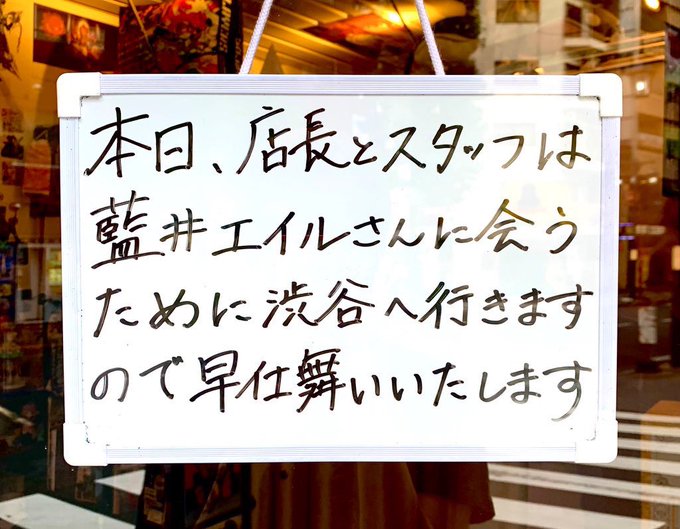 本日、店長とスタッフは
藍井エイルさんに会う
ために渋谷へ行きます
ので早仕舞いいたします